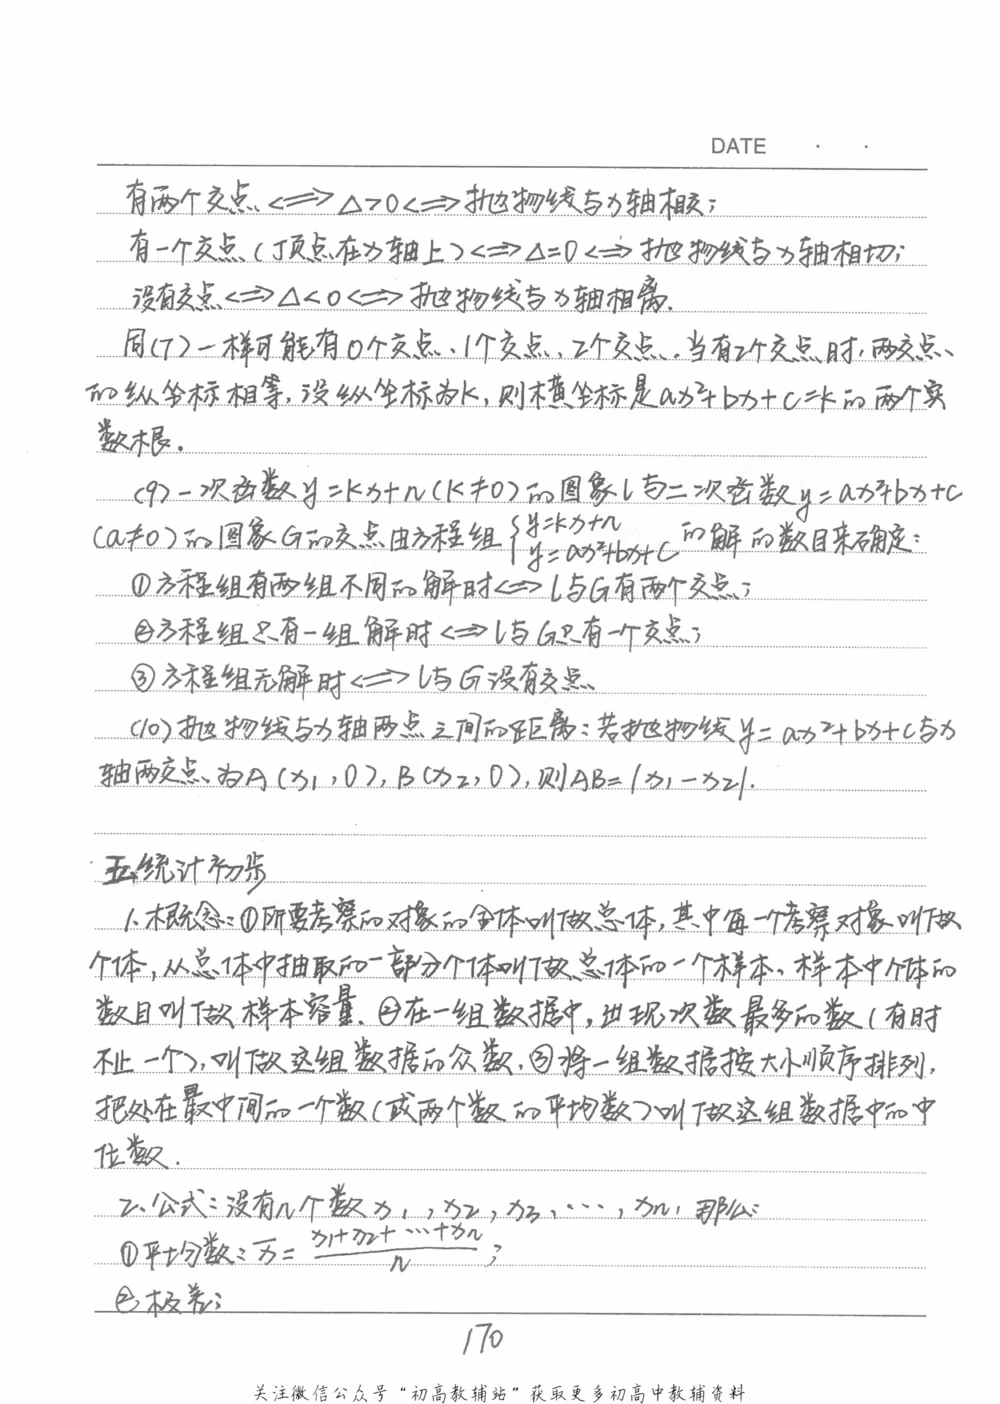 DATE · ·
有两个交点 <=> △>0 <=> 抛物线与x轴相交;
有一个交点(顶点在x轴上) <=> △=0 <=> 抛物线与x轴相切;
没有交点 <=> △<0 <=> 抛物线与x轴相离.
同(7)一样可能有0个交点、1个交点、2个交点.当有2个交点时,两交点
的纵坐标相等,设纵坐标为k,则横坐标是ax²+bx+c=k的两个实
数根.
(9)一次函数y=kx+n(k≠0)的图象l与二次函数y=ax²+bx+c
(a≠0)的图象G的交点由方程组{y=kx+n y=ax²+bx+c 的解的数目来确定:
①方程组有两组不同的解时 <=> l与G有两个交点;
②方程组只有一组解时 <=> l与G只有一个交点;
③方程组无解时 <=> l与G没有交点
(10)抛物线与x轴两点之间的距离:若抛物线y=ax²+bx+c与x
轴两交点为A(x₁,0),B(x₂,0),则AB=|x₁-x₂|.
五、统计初步
1.概念:①所要考察的对象的全体叫做总体,其中每一个考察对象叫做
个体,从总体中抽取的一部分个体叫做总体的一个样本,样本中个体的
数目叫做样本容量.②在一组数据中,出现次数最多的数(有时
不止一个),叫做这组数据的众数.③将一组数据按大小顺序排列,
把处在最中间的一个数(或两个数的平均数)叫做这组数据中的中
位数.
2.公式:没有n个数x₁,x₂,x₃,…,xₙ,那么:
①平均分数:x̄=(x₁+x₂+…+xₙ)/n;
②极差;
170
关注微信公众号“初高教辅站”获取更多初高中教辅资料